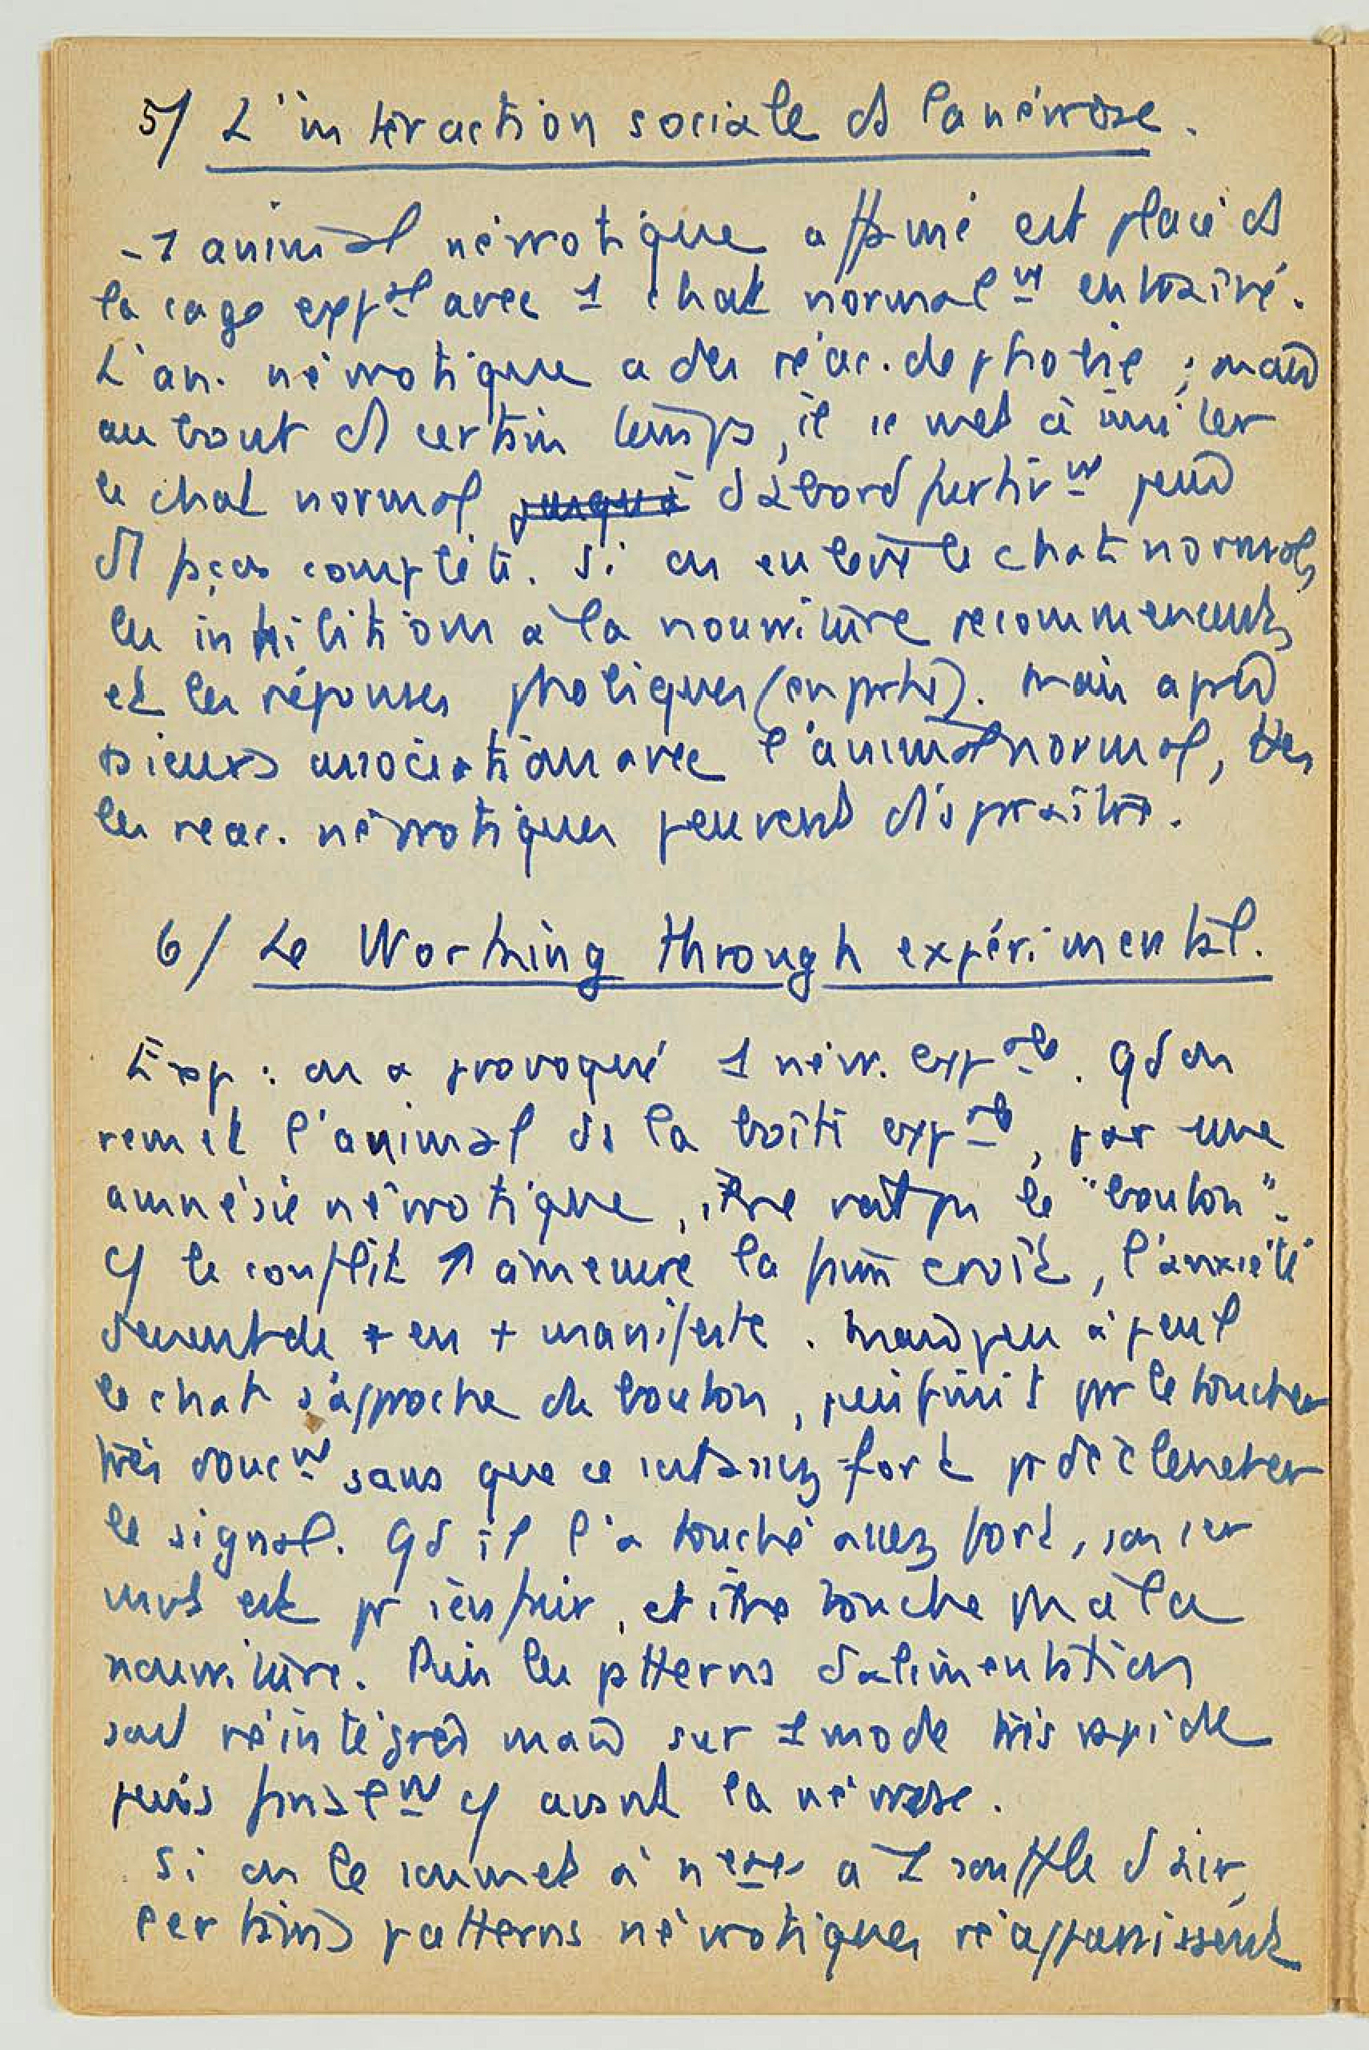 5/ L'interaction sociale ds la névrose.
- 1 animal névrotique affamé est placé ds
la cage exptal avec 1 chat normalmt entraîné.
L'an. névrotique a des réac. de phobie ; mais
au bout d1 certain temps, il se met à imiter
le chat normal jusqu'à d'abord furtivmt puis
d1 façon complète. Si on enlève le chat normal,
les inhibitions à la nourriture recommencent,
et les réponses phobiques (en partie). Mais après
plusieurs associations avec l'animal normal, ttes
les reac. névrotiques peuvent disparaître.
6/ Le Working through expérimental.
Exp : on a provoqué 1 névr. exptale. Qd on
remet l'animal ds la boîte exptale, par une
amnésie névrotique, il ne voit pas le "bouton".
le conflit ↑ à mesure la faim croît, l'anxiété
devient de + en + manifeste. Mais peu à peu
le chat s'approche du bouton, puis finit par le toucher
très doucmt sans que ce soit assez fort pr déclencher
le signal. Qd il l'a touché assez fort, son 1er
mvt est pr s'enfuir, et il ne touche pas à la
nourriture. Puis les patterns d'alimentation
sont réintégrés mais sur 1 mode très rapide
puis finalmt avant la névrose.
Si on le soumet à à 1 souffle d'air,
certains patterns névrotiques réapparaissent